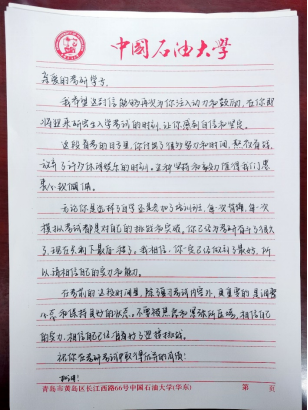 中国石油大学
亲爱的考研学子:
我希望这封信能够再次为你注入动力和鼓励,在你即
将迎来研究生入学考试的时刻,让你感到自信和坚定。
这段备考的日子里,你付出了很多努力和时间,熬夜夜读,
放弃了许多休闲娱乐的时刻。这种坚持和毅力值得我们
无论你是选择了自学还是参加了培训班,每一次背诵,每一次
模拟考试都是对自己的挑战和突破。你已经为考研奋斗了很久
了,现在只剩下最后一搏了。我相信,你一定已经做到了最好,所
以请相信自己的实力和能力。
在考前的这段时间里,除了复习考试内容外,更重要的是调整
心态和保持良好的状态。不要被焦虑和紧张所困扰,相信自己
的实力,相信自己已经有了迎接挑战。
祝你在考研考试中取得优异的成绩!
青岛市黄岛区长江西路66号中国石油大学(华东)
第 页